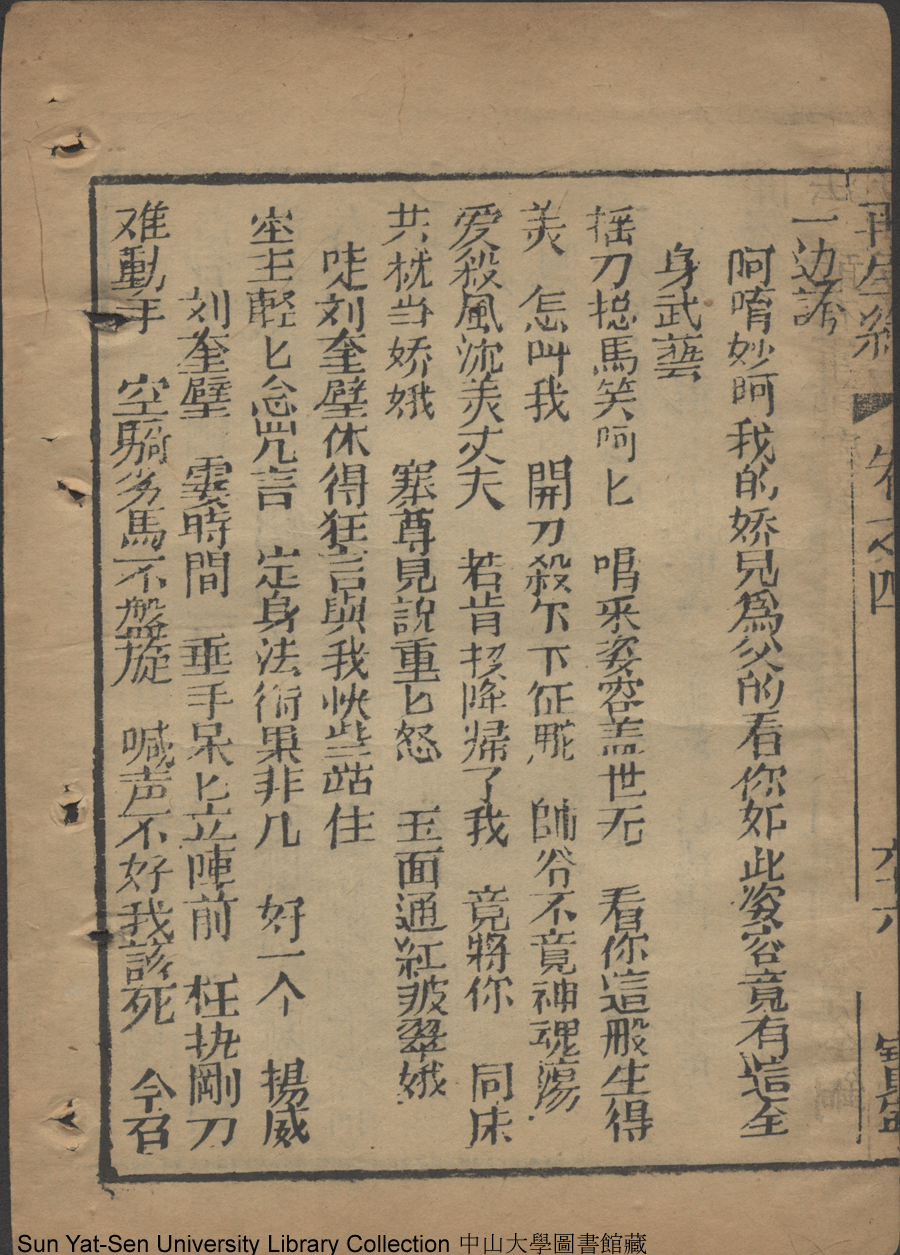 再生緣 卷之四 六十六 寶
一边誇
阿唷妙阿我的娇兒爲父的看你如此姿容竟有這全
身武藝
摇刀捴馬笑呵匕 唱采姿容盖世无 看你這般生得
美 怎叫我 開刀殺尔下征駞 帥爷不竟神魂蕩
爱殺風流美丈夫 若肯投降帰了我 竟將你 同床
共枕当娇娥 寨尊見說重匕怒 玉面通紅皱翠娥
哇刘奎壁休得狂言與我快些站住
寨主軽匕念咒言 定身法術果非凡 好一个 揚威
刘奎璧 霎時間 垂手呆匕立陣前 枉执剛刀
难動手 空騎劣馬不盤旋 喊声不好我該死 今召
Sun Yat-Sen University Library Collection 中山大學圖書館藏